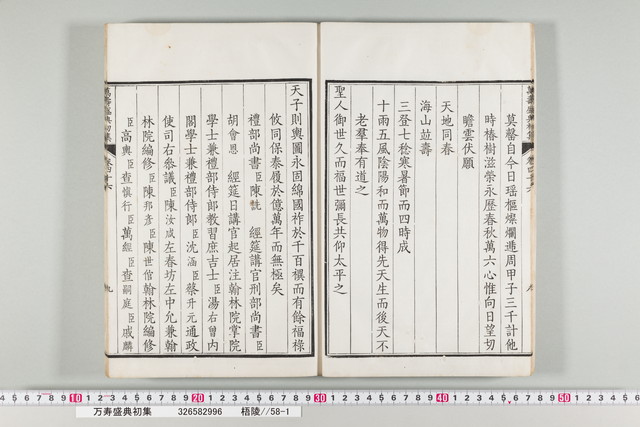 莫罄自今日瑶樞燦爛遁周甲子三千計他
時椿樹滋榮永歷春秋萬六心惟向日望切
瞻雲伏願
天地同春
海山竝壽
三登七稔寒暑節而四時成
十雨五風陰陽和而萬物得先天生而後天不
老羣奉有道之
聖人御世久而福世彌長共仰太平之
天子則輿圖永固綿國祚於千百禩而有餘福祿
攸同保泰履於億萬年而無極矣
禮部尚書臣陳詵 經筵講官刑部尚書臣
胡會恩 經筵日講官起居注翰林院掌院
學士兼禮部侍郎教習庶吉士臣湯右曾內
閣學士兼禮部侍郎臣沈涵臣蔡升元通政
使司右參議臣陳汝咸左春坊左中允兼翰
林院編修臣陳邦彥臣陳世倌翰林院編修
臣高輿臣查慎行臣萬經臣查嗣庭臣戚麟
萬壽盛典初集 卷四十六
10 20 30 40 50
万寿盛典初集 326582996 梧陵//58-1